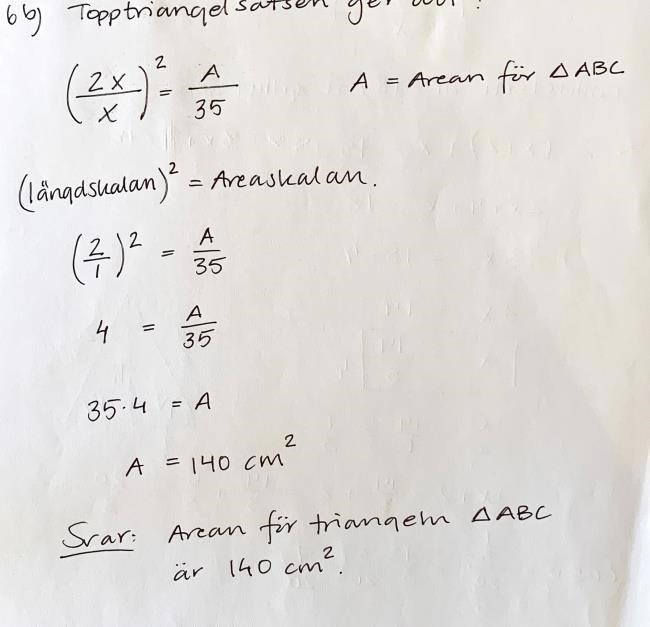 6b) Topptriangelsatsen ger
(2x/x)² = A/35    A = Arean för △ABC
(längdskalan)² = Areaskalan.
(2/1)² = A/35
4 = A/35
35·4 = A
A = 140 cm²
Svar: Arean för triangeln △ABC
är 140 cm².